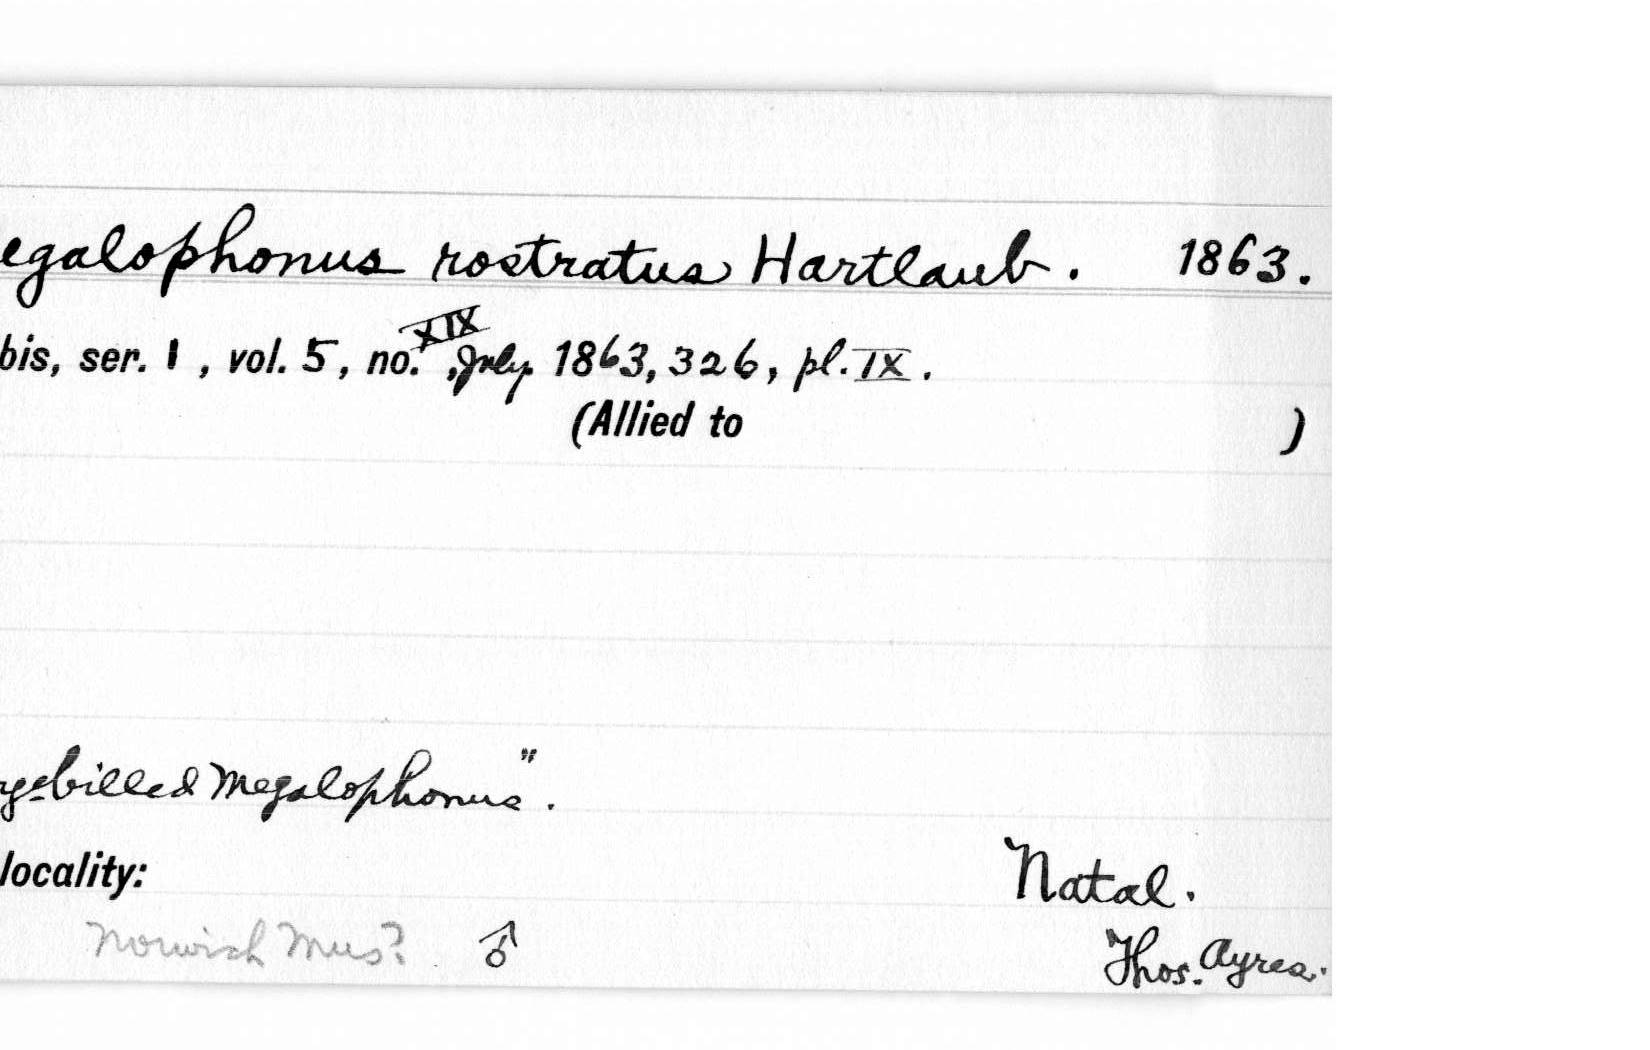 egalophonus rostratus Hartlaub. 1863.
bis, ser. 1, vol. 5, no. XIX, July 1863, 326, pl. IX.
(Allied to )
gebilled Megalophonus".
locality: Natal.
Norwich Mus? ♂ Thos. Ayres.